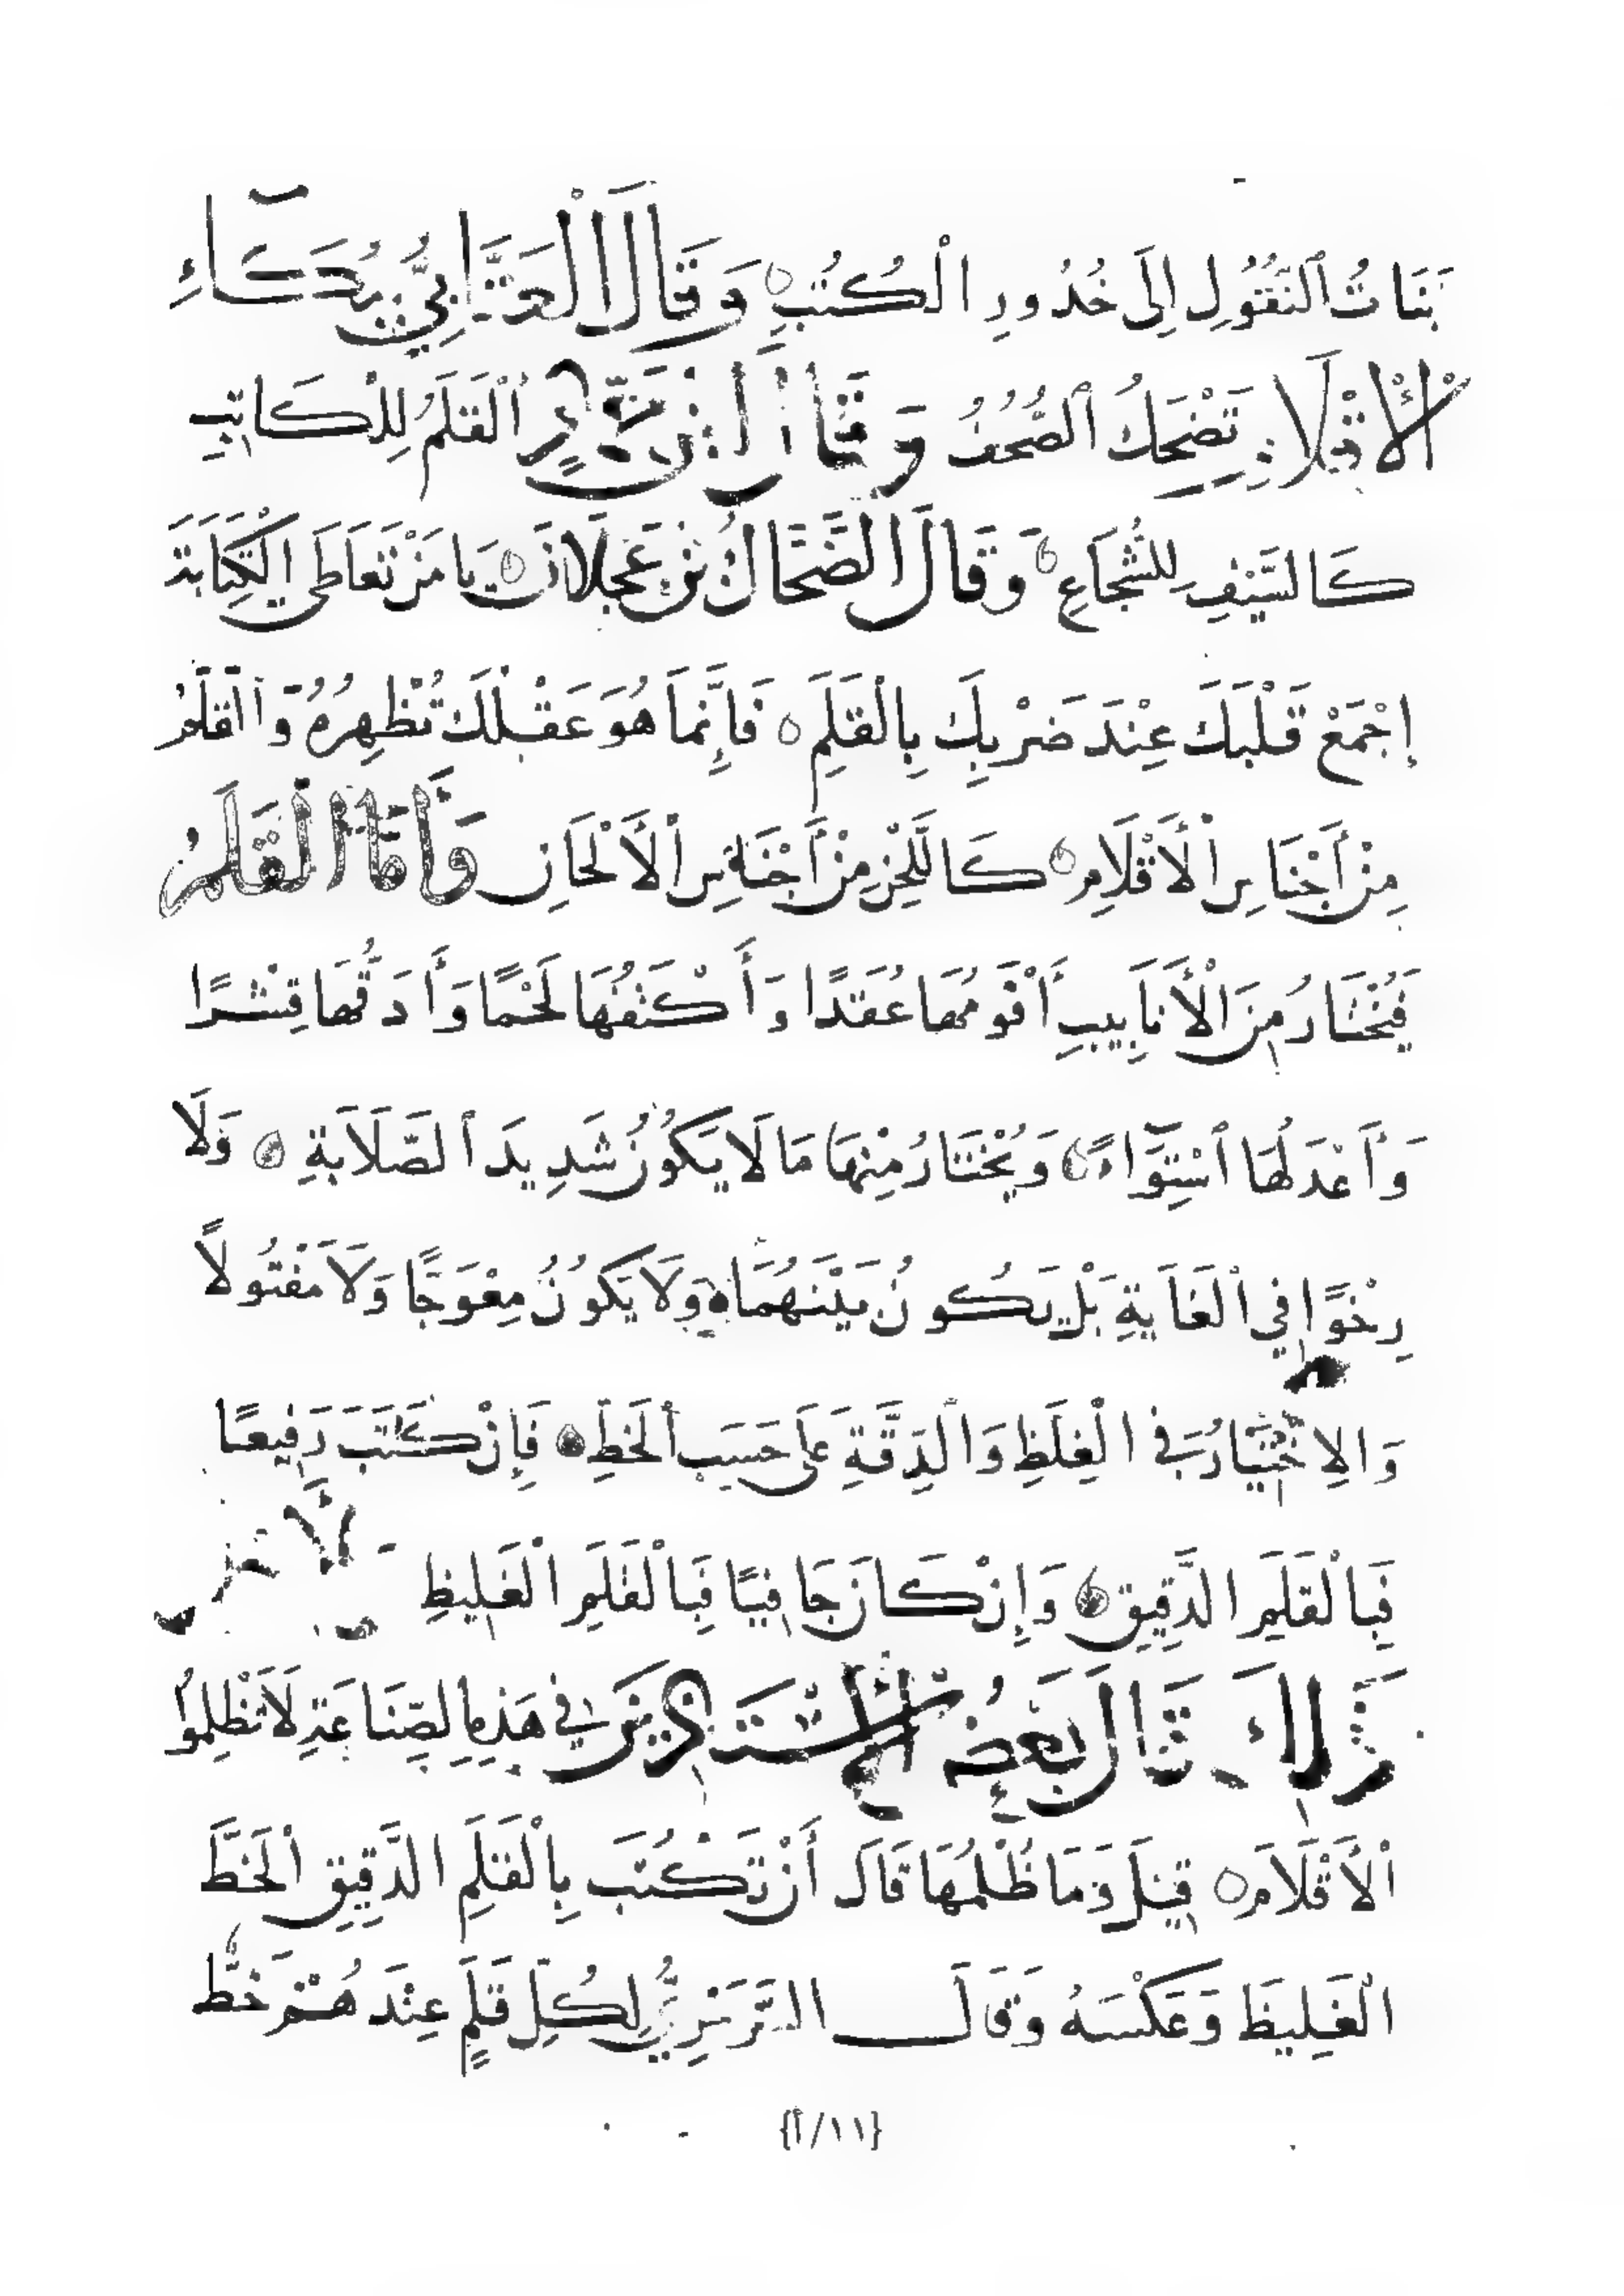 بَنَاتُ ٱلنُقُولِ إِلَى خُدُورِ الْكُتُبِ وَقَالَ الْعَتَّابِيُّ بِبُكَآءِ
الْأَقْلَامِ تَضْحَكُ ٱلصُّحُفُ وَقَالَ ابْنُ ٱلْقَلَمُ لِلْكَاتِبِ
كَالسَّيْفِ لِلشُّجَاعِ وَقَالَ الضَّحَّاكُ بْنُ عَجْلَانَ يَا مَنْ تَعَاطَى الْكِتَابَةَ
إِجْمَعْ قَلْبَكَ عِنْدَ ضَرْبِكَ بِالْقَلَمِ فَإِنَّمَا هُوَ عَقْلُكَ تُظْهِرُهُ وَالْقَلَمُ
مِنْ أَجْنَاسِ ٱلْأَقْلَامِ كَاللَّحْنِ مِنْ أَجْنَاسِ ٱلْأَلْحَانِ وَأَمَّا الْقَلَمُ
فَيُخْتَارُ مِنَ الْأَنَابِيبِ أَقْوَمُهَا عُقَدًا وَأَكْثَفُهَا لَحْمًا وَأَدَقُّهَا قِشْرًا
وَأَعْدَلُهَا ٱسْتِوَآءً وَيُخْتَارُ مِنْهَا مَا لَا يَكُونُ شَدِيدَ ٱلصَّلَابَةِ وَلَا
رِخْوًا فِي ٱلْغَايَةِ بَلْ يَكُونُ بَيْنَهُمَا وَلَا يَكُونُ مِعْوَجًّا وَلَا مَفْتُولًا
وَالِاخْتِيَارُ فِي الْغِلَظِ وَالدِقَّةِ عَلَى حَسَبِ ٱلْخَطِّ فَإِنْ كَتَبَ رَفِيعًا
فَبِالْقَلَمِ الدَّقِيقِ وَإِنْ كَانَ جَافِيًا فَبِالْقَلَمِ الْغَلِيظِ
ذَلِكَ قَالَ بَعْضُ فِي هَذِهِ الصِّنَاعَةِ لَا تَظْلِمُوا
ٱلْأَقْلَامَ قِيلَ وَمَا ظُلْمُهَا قَالَ أَنْ تَكْتُبَ بِالْقَلَمِ الدَّقِيقِ الْخَطَّ
الْغَلِيظَ وَعَكْسَهُ وَقَالَ لِكُلِّ قَلَمٍ عِنْدَهُمْ خَطٌّ
{١١/أ}